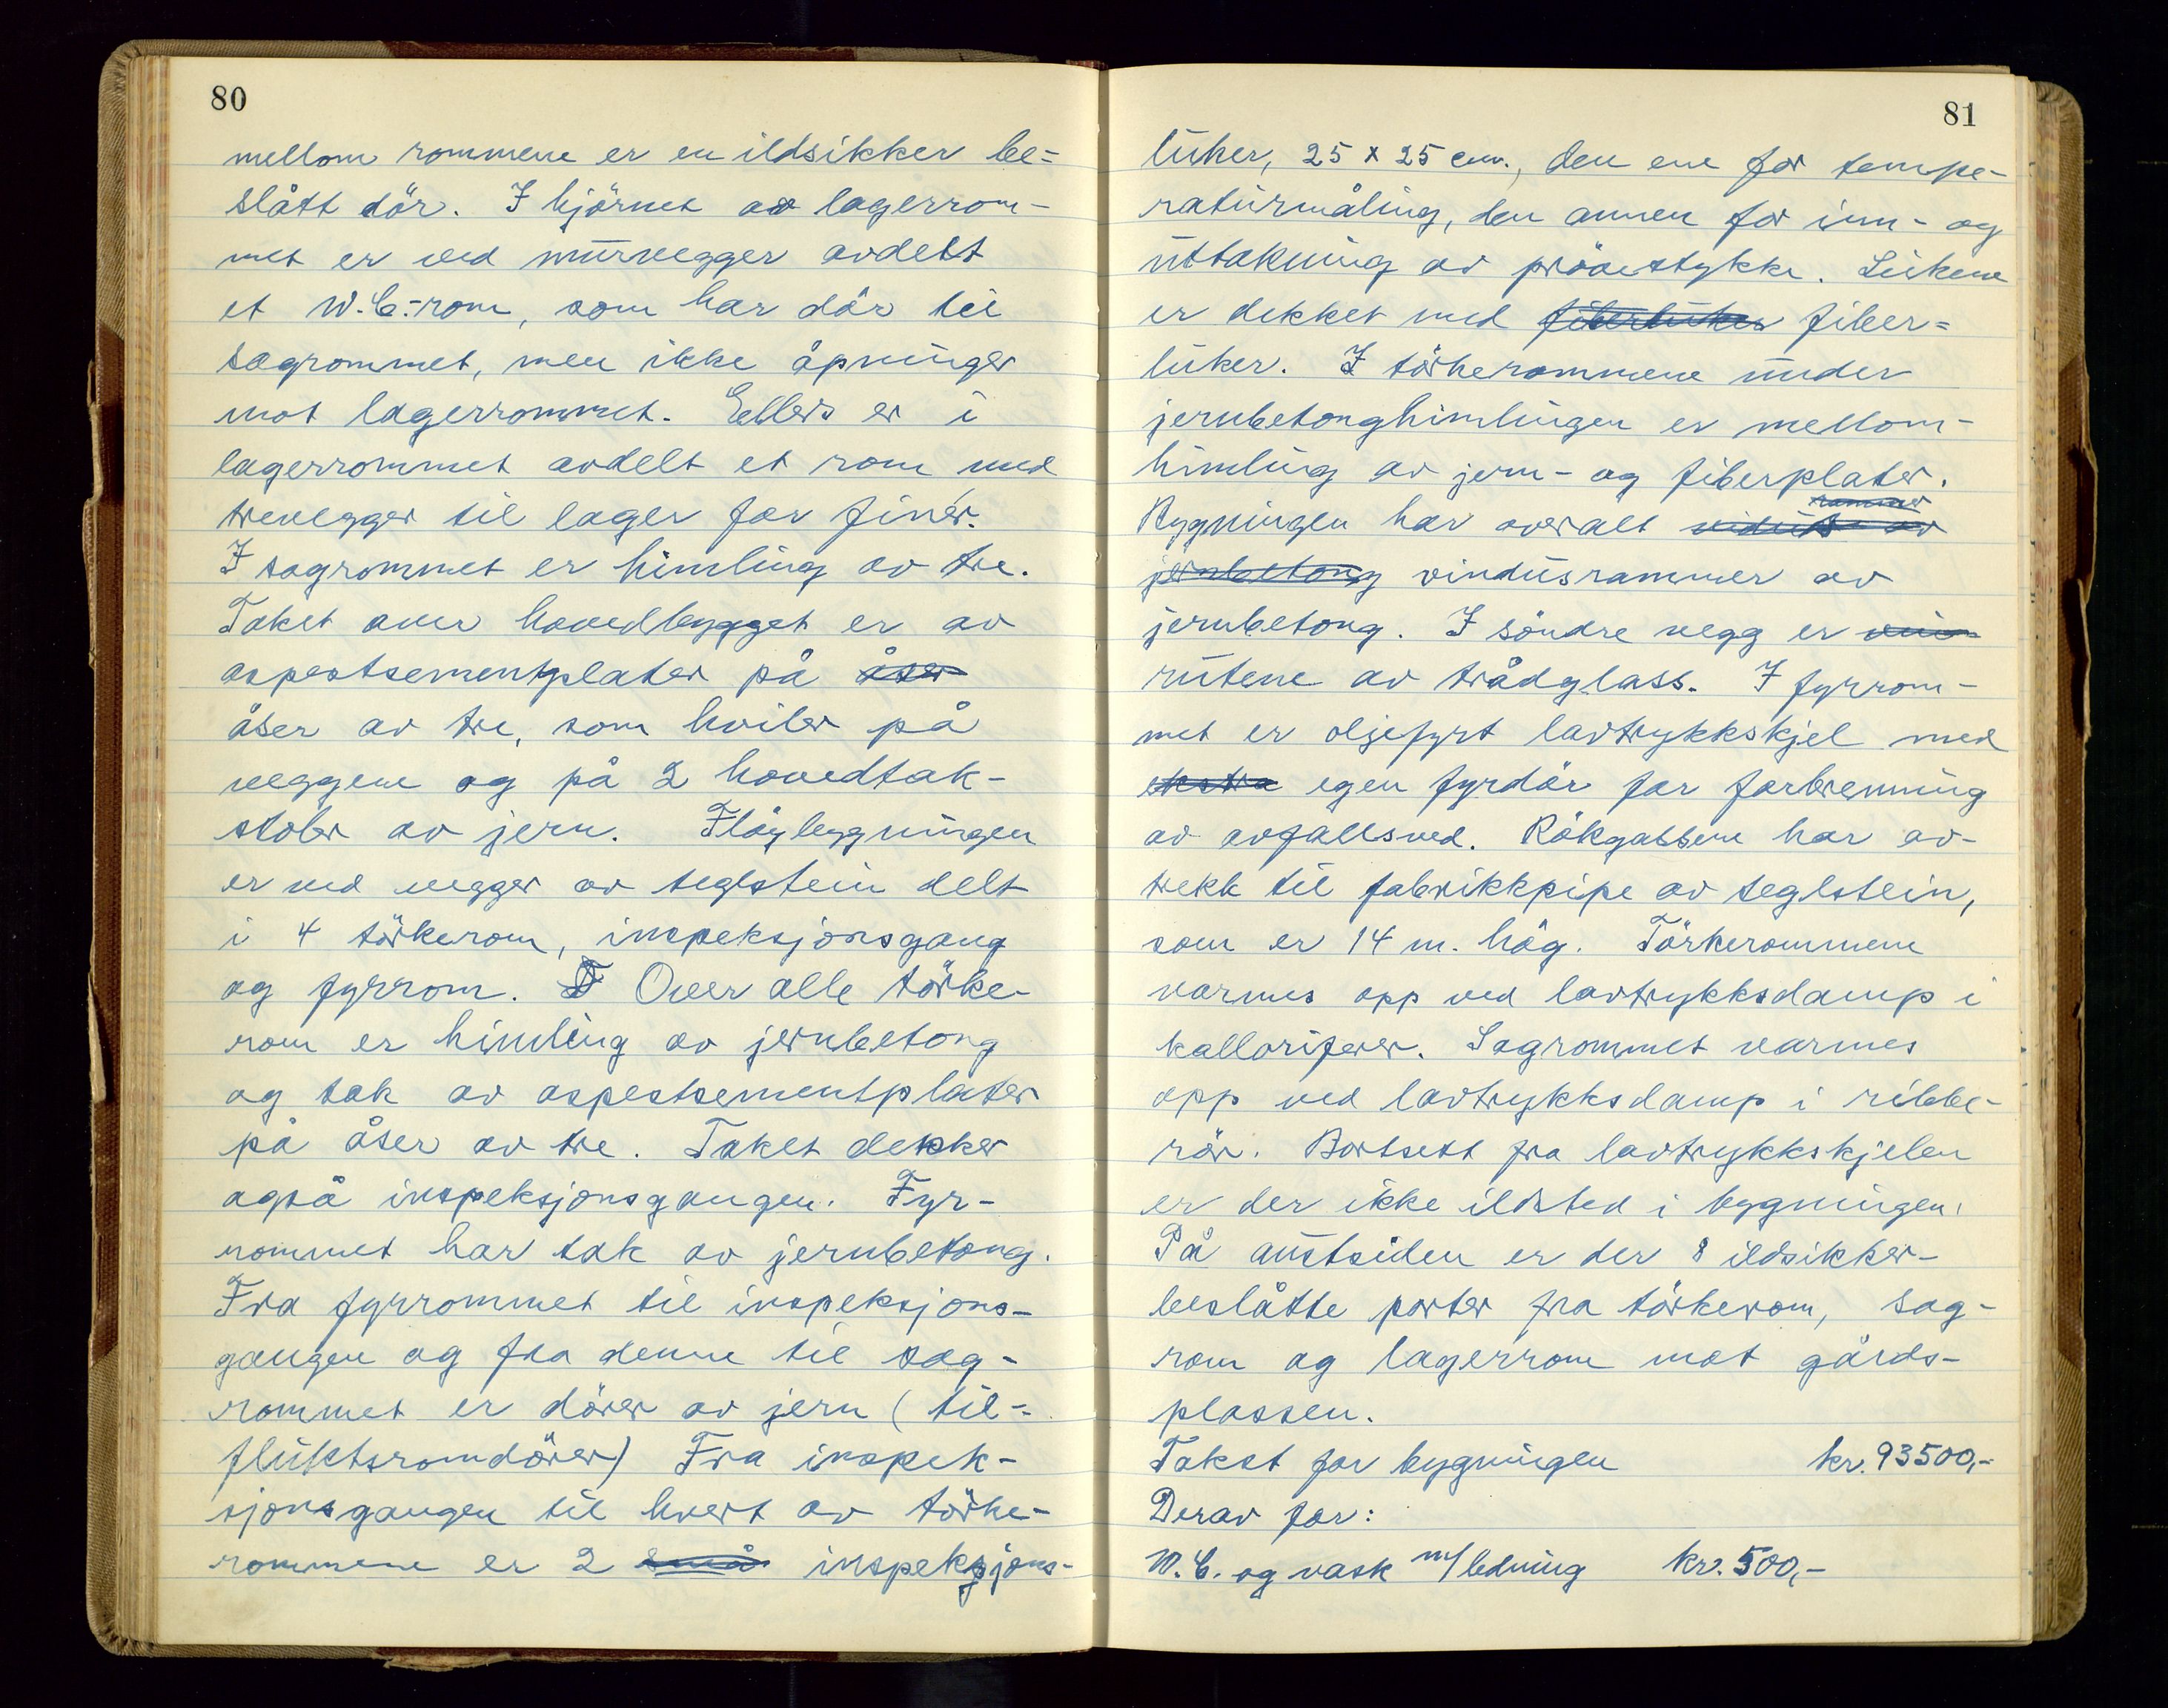 80
mellom rommene er en ildsikker be=
slått dör. I hjörnet av lagerrom-
met er ved murvegger avdelt
et W.C.-rom, som har dör til
sagrommet, men ikke åpninger
mot lagerrommet. Ellers er i
lagerrommet avdelt et rom med
trevegger til lager for finér.
I sagrommet er himling av tre.
Taket over hovedbygget er av
aspestsementplater på åser
åser av tre, som hviler på
veggene og på 2 hovedtak-
stoler av jern. Flöybygningen
er ved vegger av teglstein delt
i 4 törkerom, inspeksjonsgang
og fyrrom. Over alle törke-
rom er himling av jernbetong
og tak av aspestsementplater
på åser av tre. Taket dekker
også inspeksjonsgangen. Fyr-
rommet har tak av jernbetong.
Fra fyrrommet til inspeksjons-
gangen og fra denne til sag-
rommet er dörer av jern (til-
fluktsromdörer) Fra inspek-
sjonsgangen til hvert av törke-
rommene er 2 små inspeksjons-
81
luker, 25 x 25 cm., den ene for tempe-
raturmåling, den annen for inn- og
uttakning av prövestykke. Lukene
er dekket med fiberluker fiber=
luker. I törkerommene under
jernbetonghimlingen er mellom-
himling av jern- og fiberplater.
rammer
Bygningen har overalt vidus av
jernbetong vindusrammer av
jernbetong. I söndre vegg er vin
rutene av trådglass. I fyrrom-
met er oljefyrt lavtrykkskjel med
ekstra egen fyrdör for forbrenning
av avfallsved. Rökgassene har av-
trekk til fabrikkpipe av teglstein,
som er 14 m. hög. Törkerommene
varmes opp ved lavtrykksdamp i
kalloriferer. Sagrommet varmes
opp ved lavtrykksdamp i ribbe-
rör. Bortsett fra lavtrykkskjelen
er der ikke ildsted i bygningen.
På austsiden er der 8 ildsikker-
beslåtte porter fra törkerom, sag-
rom og lagerrom mot gårds-
plassen.
Takst for bygningen kr. 93500,-
Derav for:
W.C. og vask m/ledning kr. 500,-